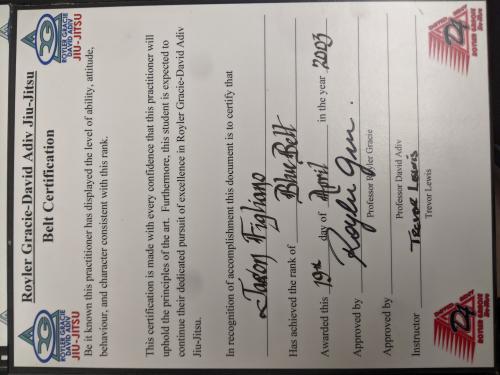 ROYLER GRACIE
DAVID ADIV
JIU-JITSU
Royler Gracie-David Adiv Jiu-Jitsu
Belt Certification
ROYLER GRACIE
DAVID ADIV
JIU-JITSU
Be it known this practitioner has displayed the level of ability, attitude,
behaviour, and character consistent with this rank.
This certification is made with every confidence that this practitioner will
uphold the principles of the art. Furthermore, this student is expected to
continue their dedicated pursuit of excellence in Royler Gracie-David Adiv
Jiu-Jitsu.
In recognition of accomplishment this document is to certify that
Jason Figliano
Has achieved the rank of Blue Belt
Awarded this 19th day of April in the year 2003
Approved by
Professor Royler Gracie
Approved by
Professor David Adiv
Instructor Trevor Lewis
Trevor Lewis
ROYLER GRACIE
Jiu-Jitsu
ROYLER GRACIE
Jiu-Jitsu